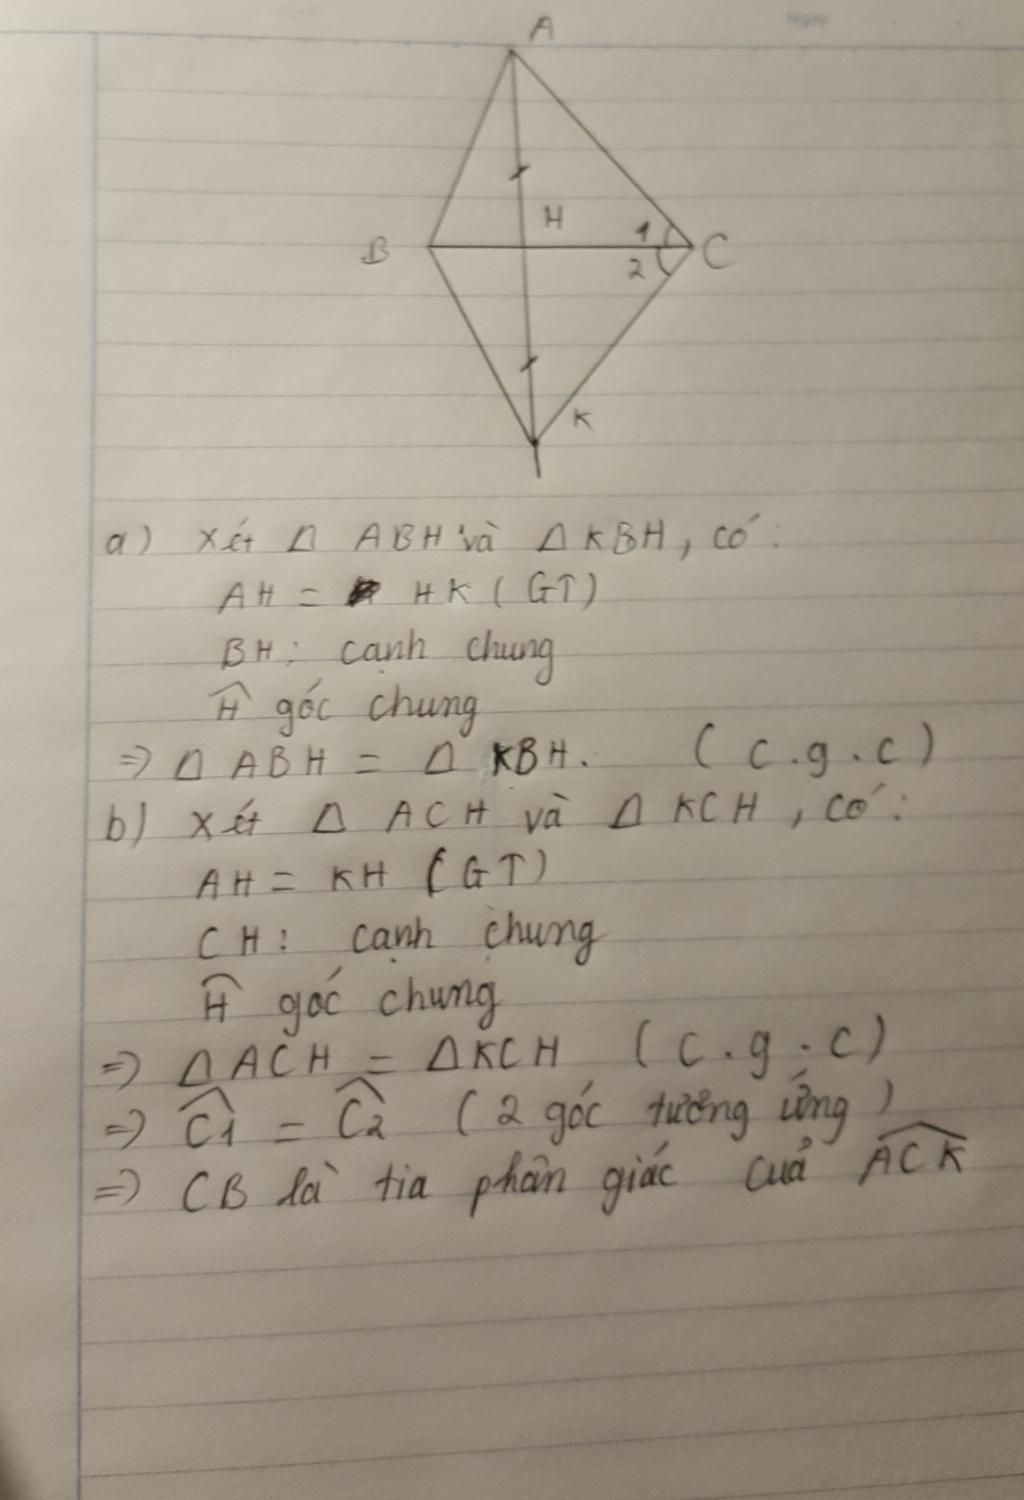 Ngày
A
H
1
B
C
2
K
a) Xét Δ ABH và Δ KBH, có:
AH = HK (GT)
BH: cạnh chung
Ĥ góc chung
=> Δ ABH = Δ KBH. (c.g.c)
b) Xét Δ ACH và Δ KCH, có:
AH = KH (GT)
CH: cạnh chung
Ĥ góc chung
=> ΔACH = ΔKCH (c.g.c)
=> Ĉ1 = Ĉ2 (2 góc tương ứng)
=> CB là tia phân giác cuả ACK